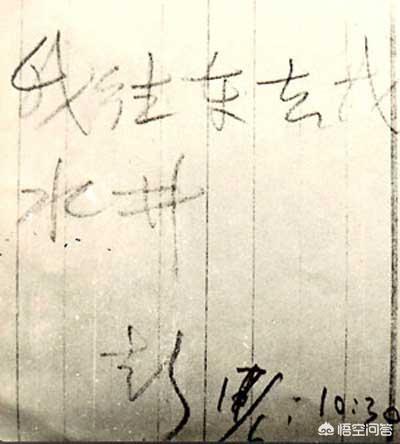 我往东去找
水井
彭
10:30
悟空问答